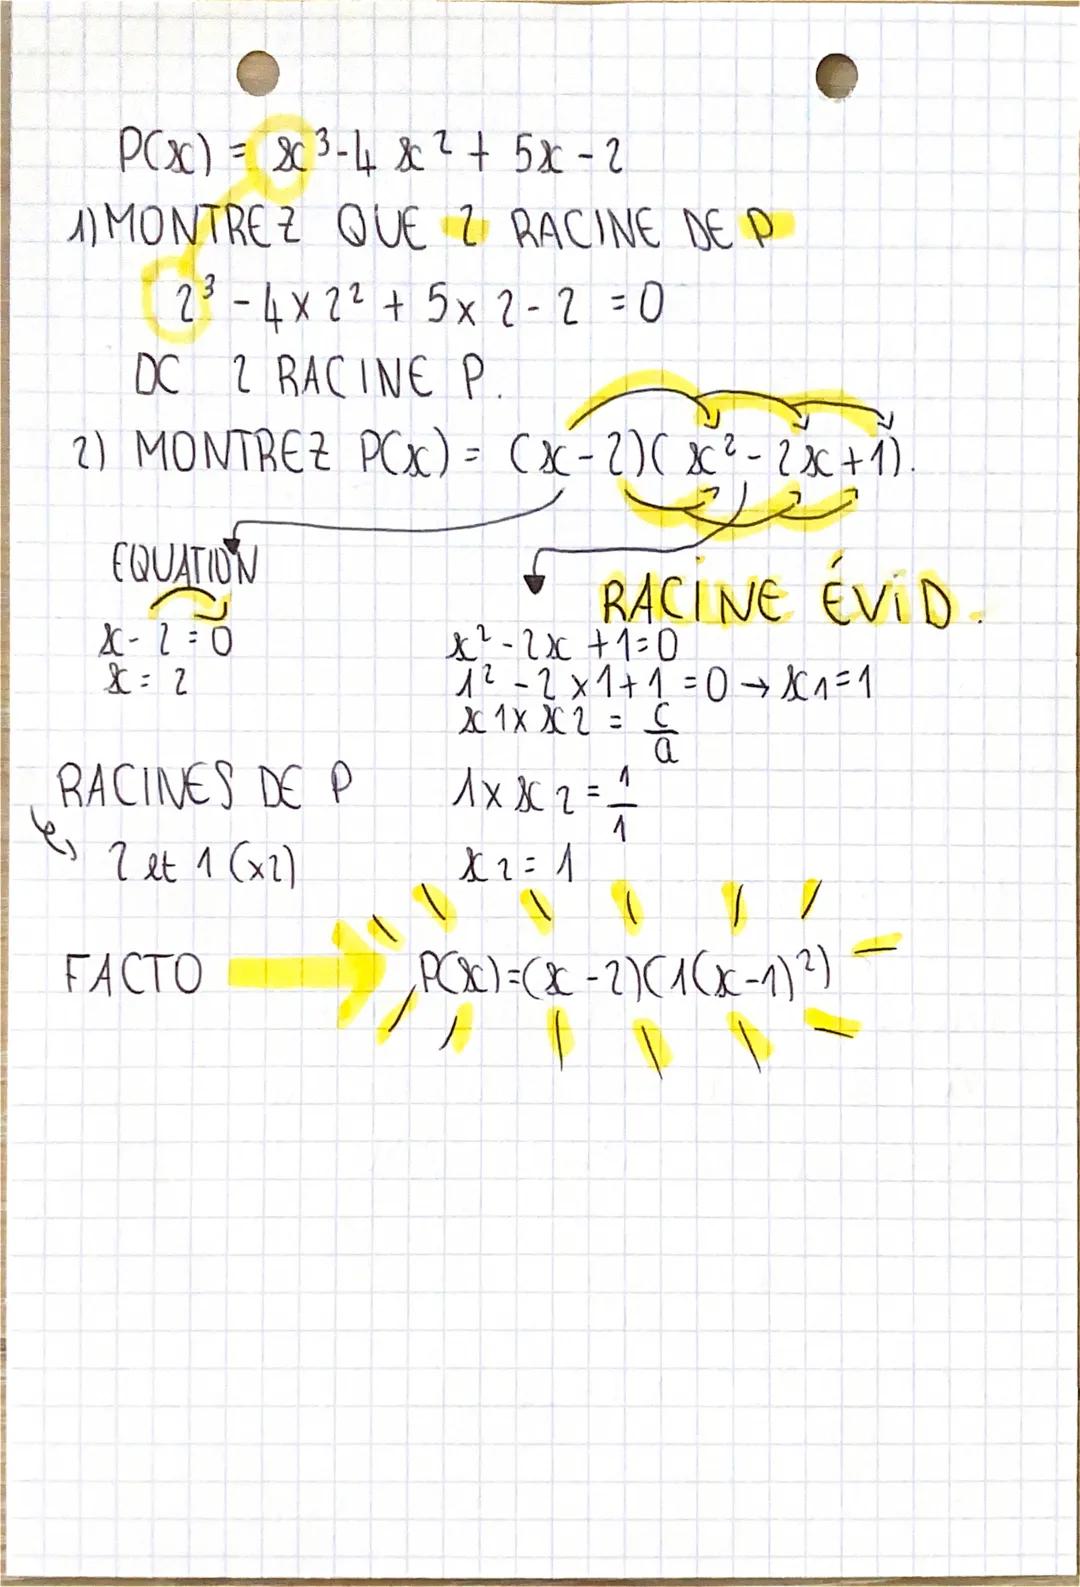 P(x) = x³-4x²+ 5x-2
1) MONTREZ QUE 2 RACINE DE P
2³ - 4 x 2² + 5 x 2 - 2 = 0
DC 2 RACINE P.
2) MONTREZ P(x) = (x-2)(x²-2x+1).
EQUATION
x-2=0
x=2
RACINE ÉVID.
x²-2x+1=0
1²-2x1+1=0 → x1=1
x1 x x2 = c/a
1 x x2 = 1/1
x2=1
RACINES DE P
2 et 1 (x2)
FACTO
P(x)=(x-2)(1(x-1)²)